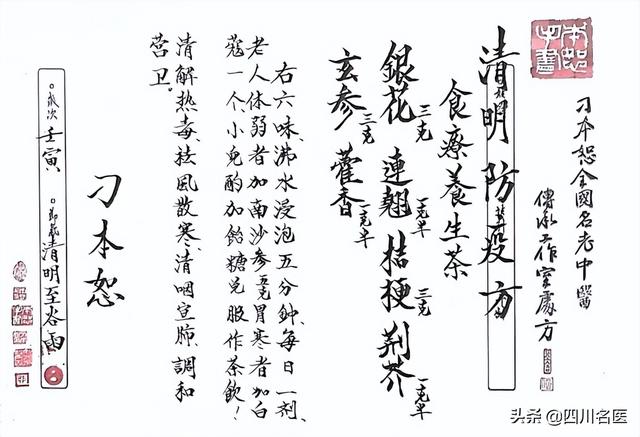 本恕手書
刁本恕全國名老中醫
傳承工作室處方
清明防疫方
食療養生茶
銀花三克 連翹一克半 桔梗三克 荆芥一克半
玄参三克 藿香一克半
右六味、沸水浸泡五分钟、每日一剂、
老人体弱者加南沙参五克冒寒者加白
蔻一个、小児酌加飴糖兑服作茶飲！
清解热毒、祛风散寒、清咽宣肺、調和
营卫。
刁本恕
歲次 壬寅 節氣 清明至谷雨
头条 @四川名医